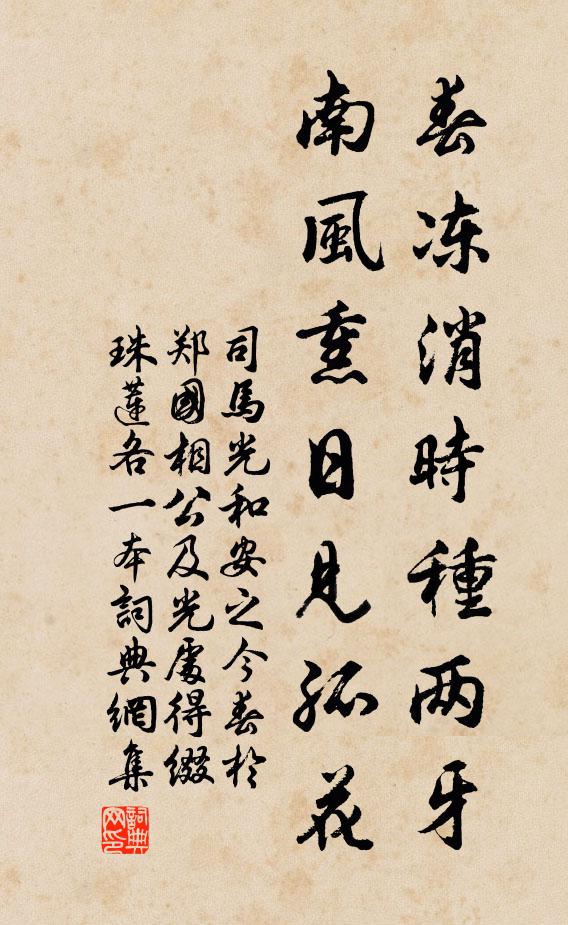 春冻消時種两牙
南風熏日見孤花
司馬光和安之今春於
郑國相公及光處得缀
珠蓮各一本詞典網集
詞典网印